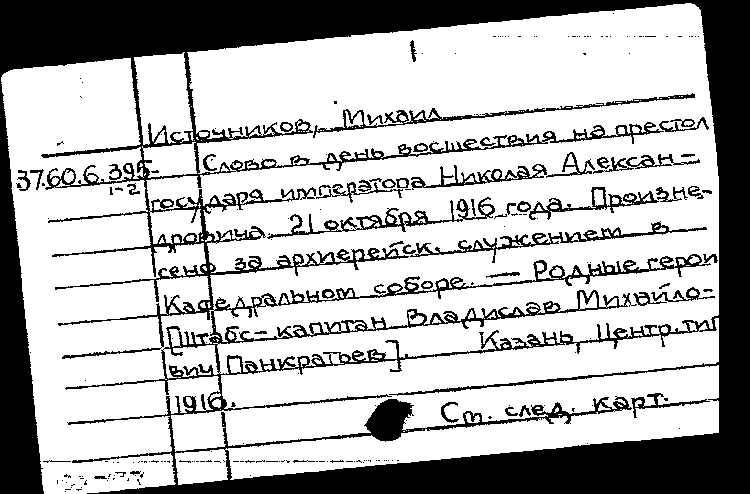 Источников, Михаил
37.60.6.395
1-2
Слово в день восшествия на престол
государя императора Николая Алексан-
дровича. 21 октября 1916 года. Произне-
сено за архиерейск. служением в
Кафедральном соборе. — Родные герои
[Штабс-капитан Владислав Михайло-
вич Панкратьев]. Казань, Центр.тип
1916.
См. след. карт.